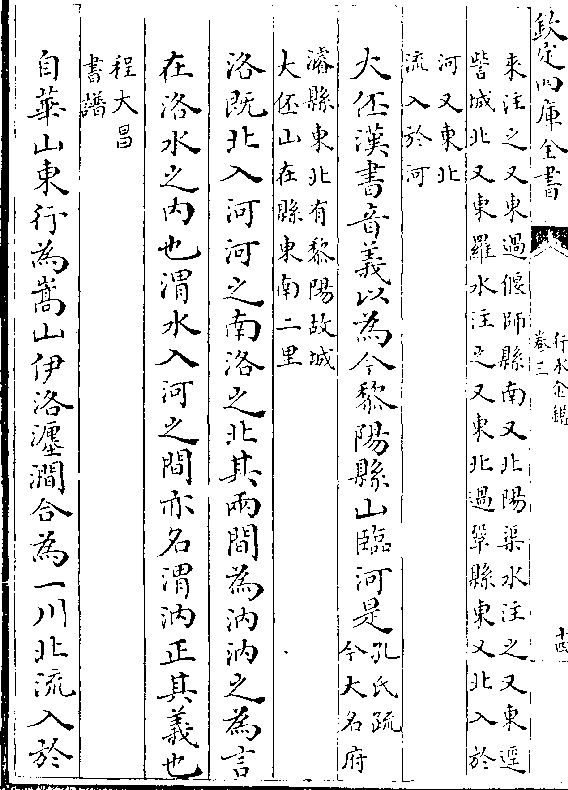 欽定四庫全書
行水金鑑
卷三
十四
來注之又東過偃師縣南又北陽渠水注之又東逕
訾城北又東羅水注之又東北過鞏縣東又北入於
河又東北
流入於河
大伾漢書音義以為今黎陽縣山臨河是孔氏疏
今大名府
濬縣東北有黎陽故城
大伾山在縣東南二里
洛既北入河河之南洛之北其兩間為汭汭之為言
在洛水之内也渭水入河之間亦名渭汭正其義也
程大昌
書譜
自華山東行為嵩山伊洛瀍澗合為一川北流入於